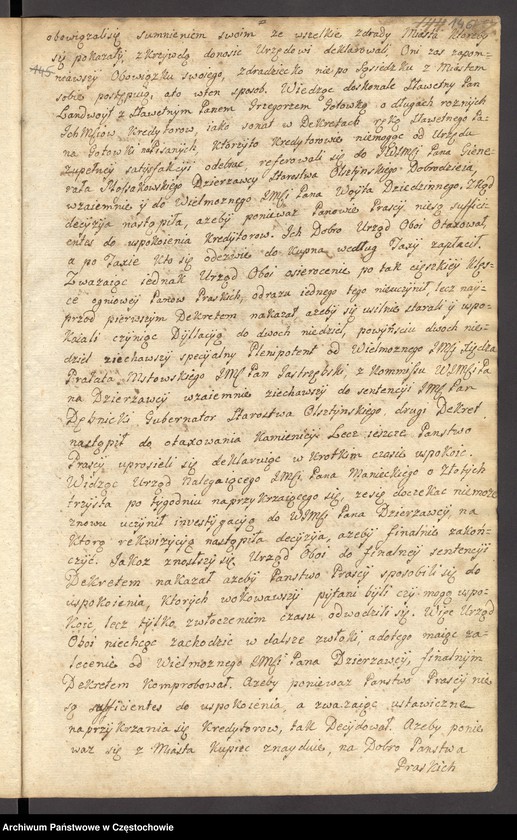 obowiązali się sumnieniem swoim że wszelkie zdrady Miastu któreby
się pokazały, z krzywdą donosić Urzędowi deklarowali Oni zaś zapom-
145
niawszy Obowiązku swojego, zdradziecko nie po Sąsiedzku z Miastem
sobie postępują, a to w ten sposob. Wiedząc doskonale Sławetny Pan
Landwoyt z Sławetnym Panem Grzegorzem Gotowką o długach roznych
Ich Mściow Kredytorow, iako sonat w Dekretach ręką Sławetnego Pa-
na Gotowki napisanych, Ktorzyto Kredytorowie niemogąc od Urzędu
zupełney satysfakcyi odebrać referowali się do JWJMści Pana Gene-
rała Dzierzawcy Starostwa Olsztynskiego Dobrodzieia,
wzaiemnie y do Wielmoznego JMści Pana Woyta Dziedzicznego. Zkąd
decyzyja nastąpiła, azeby poniewaz Panowie Prascy nie są suffici-
entes do uspokoienia Kredytorow. Ich Dobro Urząd Oboi Otaxował,
a po Taxie Kto się odezwie do Kupna według Taxy zapłacił.
Zwazaiąc iednak Urząd Oboi osierocenie po tak cięszkiey Klęs-
ce ogniowey Panow Praskich, odrazu iednego tego nieuczynił, lecz nay-
przod pierwszym Dekretem nakazał azeby się usilnie starali y uspo-
Kaiali czyniąc Dyllacyą do dwoch niedziel, po wyisciu dwoch nie-
dziel ziechawszy specyalny Plenipotent od Wielmoznego JMści Xiędza
Prałata Mstowskiego JMść Pan Jastrzębski, z Kommissu WJMści Pa-
na Dzierzawcy wzaiemnie ziechawszy do sentencyi JMść Pan
Dębnicki Gubernator Starostwa Olsztynskiego, drugi Dekret
nastąpił do otaxowania Kamienicy. Lecz ieszcze Panstwo
Prascy uprosieli się deklaruiąc w Krotkim czasie uspokoic.
Widząc Urząd Nalegaiącego JMści Pana Manieckiego o Złotych
trzysta po tygodniu naprzykrzaiącego się, ze się doczekac niemoze
znowu uczynił investygacyą do WJMści Pana Dzierzawcy, na
Ktorą rekwizycyą nastąpiła decyzyia, azeby finalnie zakon-
czyć. Jakoz zniosłszy się Urząd Oboi do finalney sentencyi
Dekretem nakazał azeby Panstwo Prascy sposobili się do
uspokoienia, Ktorych wokowawszy pytani byli czy mogą uspo-
Koić lecz tylko zwłoczeniem czasu odwodzili się. Więc Urząd
Oboi niechcąc zachodzic w dalsze zwłoki, a do tego maiąc za-
lecenie od Wielmoznego JMści Pana Dzierzawcy, finalnym
Dekretem Komprobował. Azeby poniewaz Panstwo Prascy nie
są sufficientes do uspokoienia, a zwazaiąc ustawiczne
naprzykrzania się Kredytorow, tak Decydował. Azeby ponie
waz się z Miasta Kupiec znayduie, na Dobro Panstwa
Praskich
Archiwum Państwowe w Częstochowie